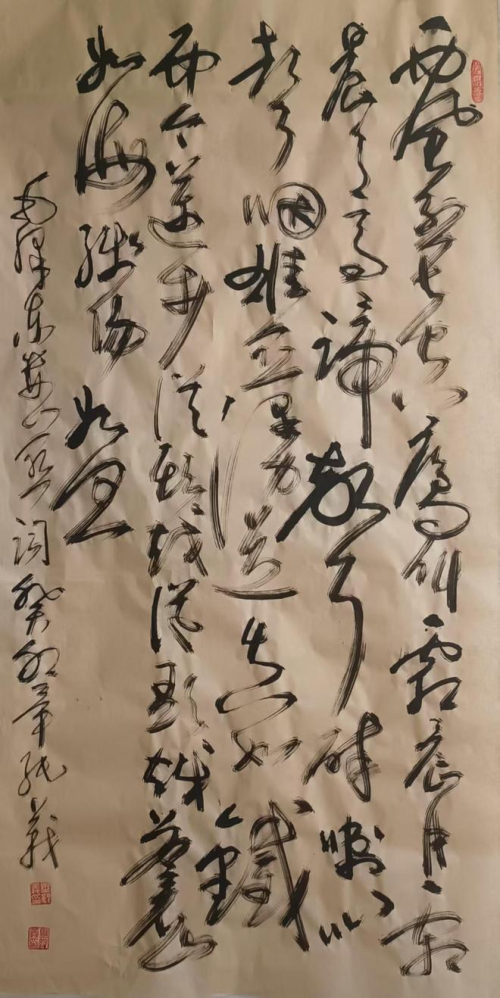 西风烈长空雁叫霜晨月霜
晨月马蹄声碎喇
叭声咽雄关漫道真如铁
而今迈步从头越从头越苍山
如海残阳如血
毛泽东娄山关词癸卯